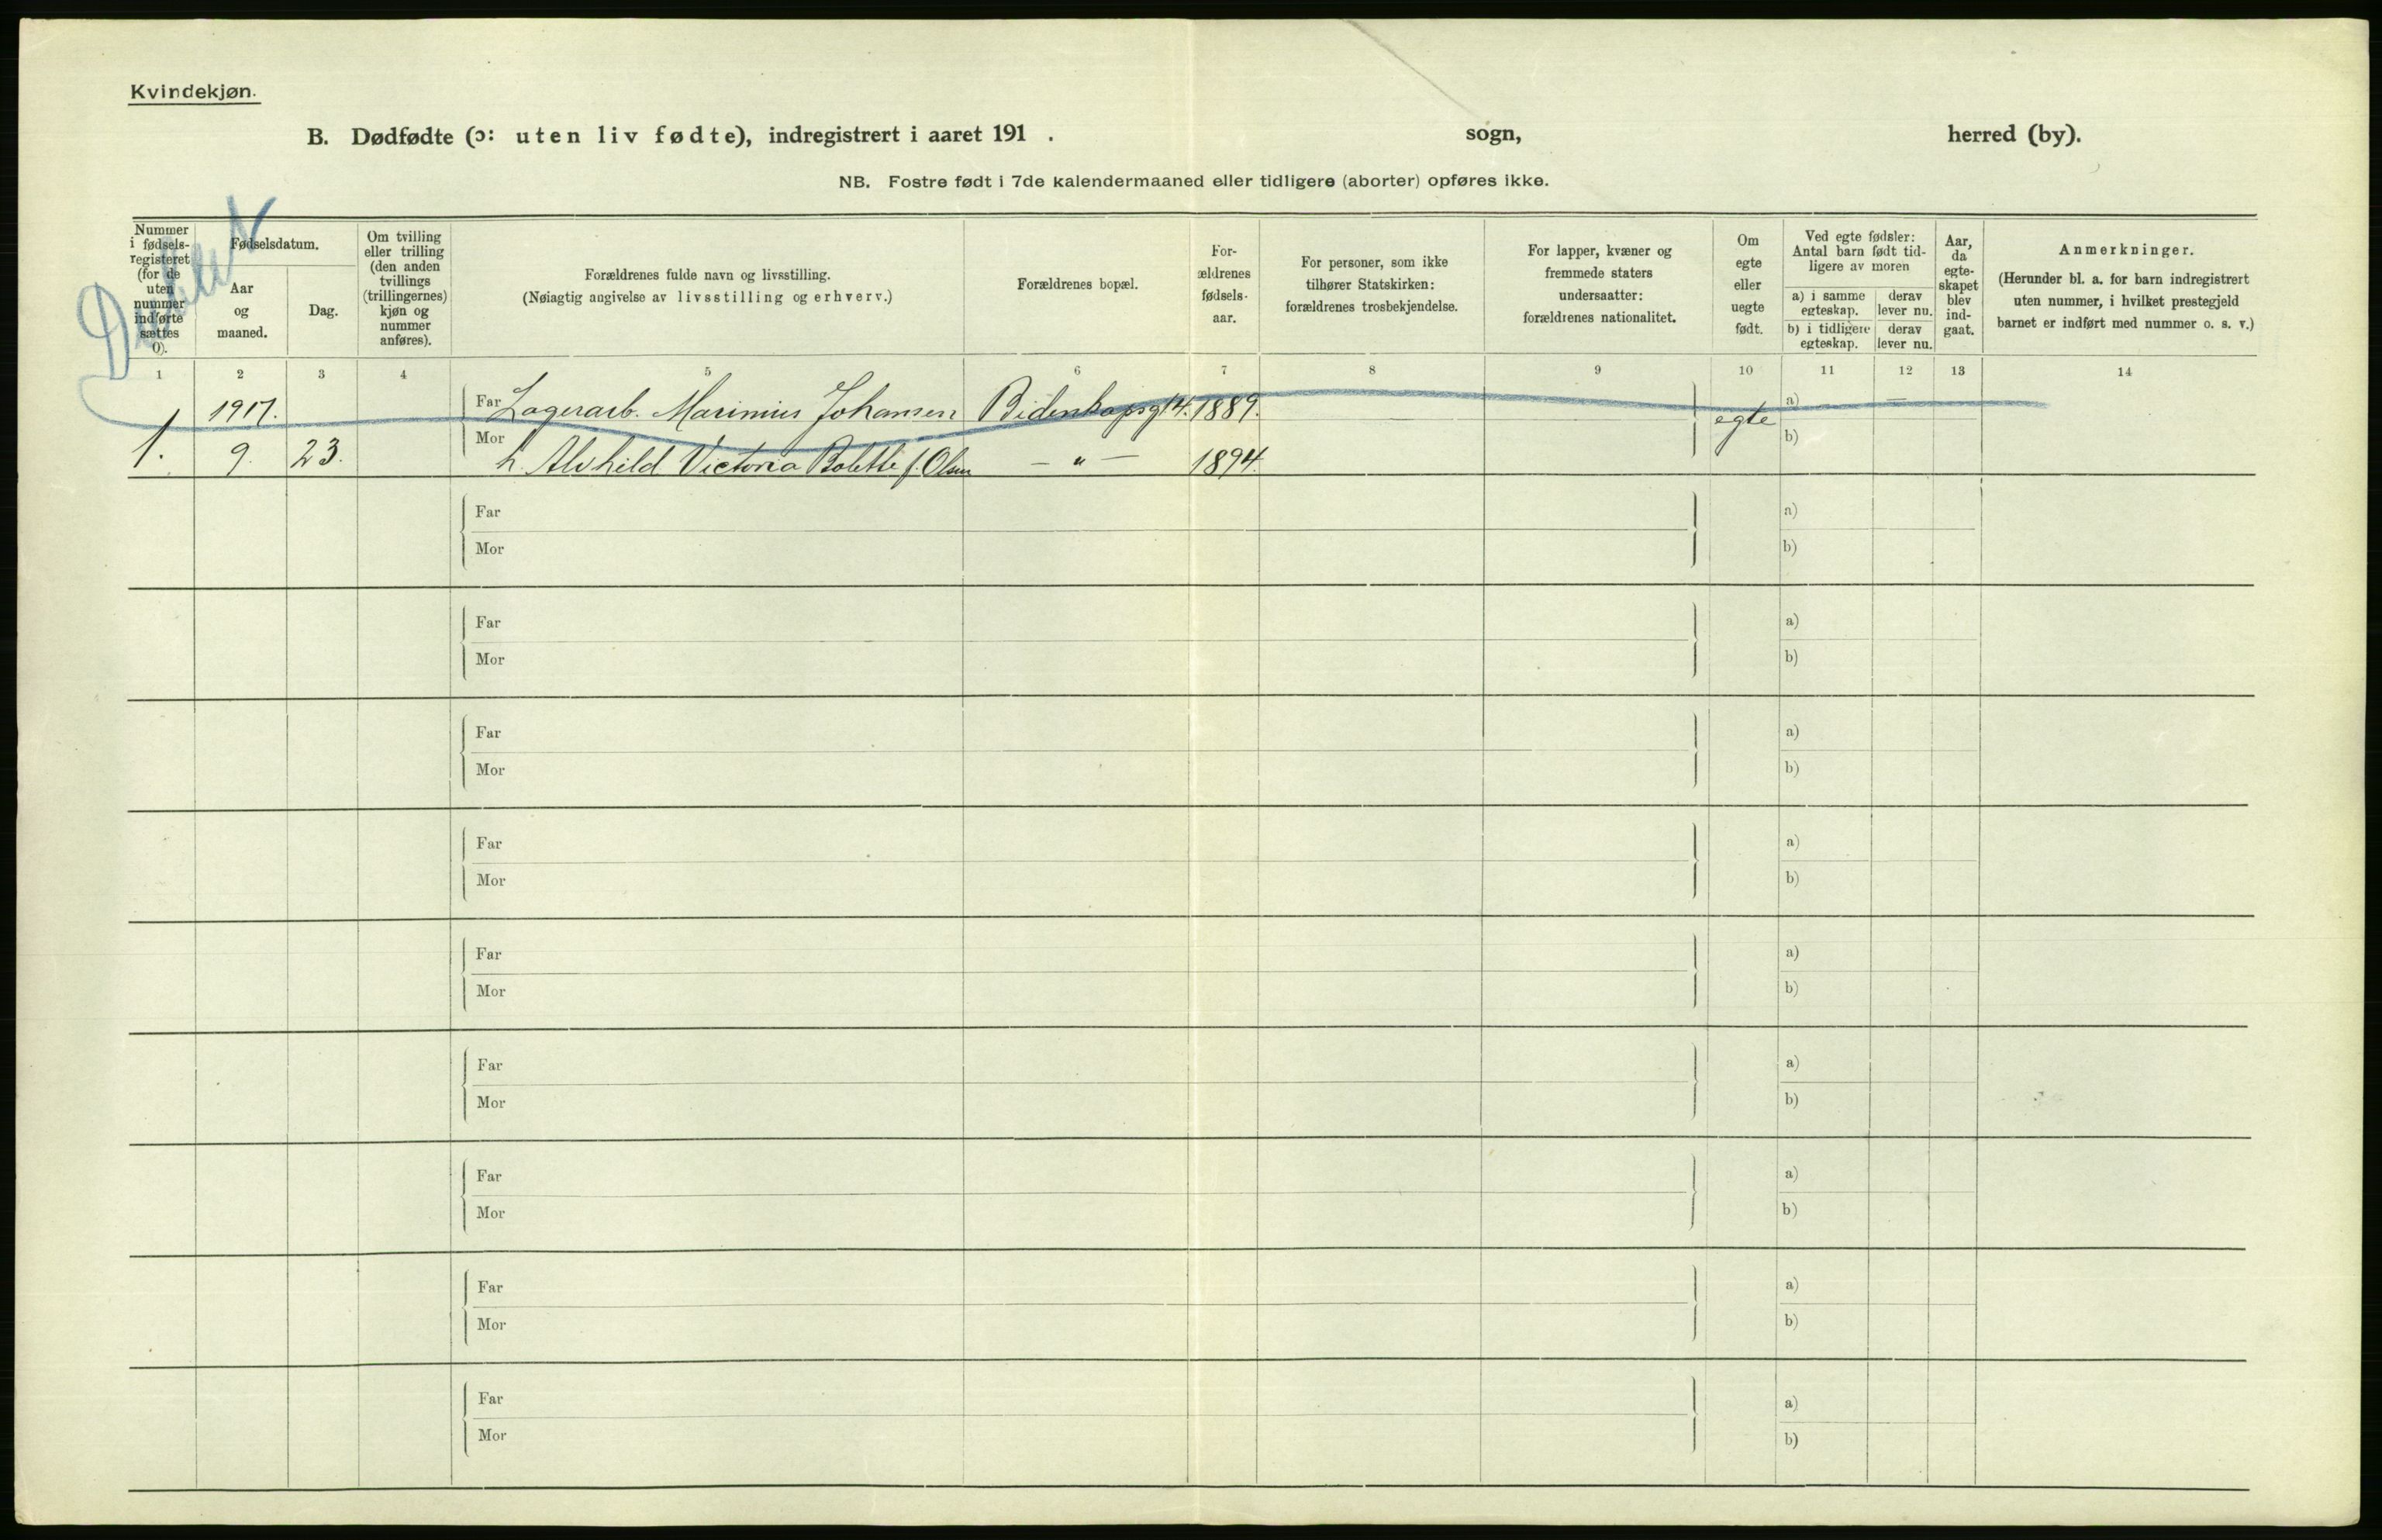 Kvindekjøn.
B. Dødfødte (ɔ: uten liv fødte), indregistrert i aaret 191 . sogn, herred (by).
NB. Fostre født i 7de kalendermaaned eller tidligere (aborter) opføres ikke.
Nummer i fødsels-registeret (for de uten nummer indførte sættes 0).
Fødselsdatum.
Aar og maaned.
Dag.
Om tvilling eller trilling (den anden tvillings (trillingernes) kjøn og nummer anføres).
Forældrenes fulde navn og livsstilling.
(Nøiagtig angivelse av livsstilling og erhverv.)
Forældrenes bopæl.
For-ældrenes fødsels-aar.
For personer, som ikke tilhører Statskirken: forældrenes trosbekjendelse.
For lapper, kvæner og fremmede staters undersaatter: forældrenes nationalitet.
Om egte eller uegte født.
Ved egte fødsler: Antal barn født tid-ligere av moren
a) i samme egteskap.
derav lever nu.
b) i tidligere egteskap.
derav lever nu.
Aar, da egte-skapet blev ind-gaat.
Anmerkninger.
(Herunder bl. a. for barn indregistrert uten nummer, i hvilket prestegjeld barnet er indført med nummer o. s. v.)
1 2 3 4 5 6 7 8 9 10 11 12 13 14
1917. Far Lagerarb. Marinius Johansen Bidenkapsg 14. 1889. egte a) —
1. 9. 23. Mor h. Alvhild Victoria Bolette f. Olsen — " — 1894 b)
Far a)
Mor b)
Far a)
Mor b)
Far a)
Mor b)
Far a)
Mor b)
Far a)
Mor b)
Far a)
Mor b)
Far a)
Mor b)
Far a)
Mor b)
Far a)
Mor b)